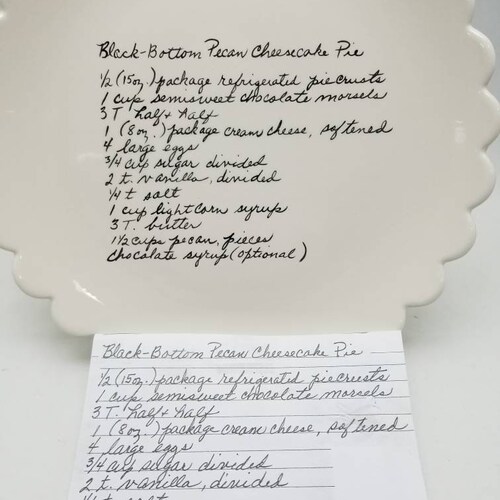 Black-Bottom Pecan Cheesecake Pie
1/2 (15oz.) package refrigerated piecrusts
1 cup semisweet chocolate morsels
3 T. half + half
1 (8oz.) package cream cheese, softened
4 large eggs
3/4 cup sugar divided
2 t. vanilla, divided
1/4 t salt
1 cup light corn syrup
3 T. butter
1 1/2 cups pecan, pieces
chocolate syrup (optional)
Black-Bottom Pecan Cheesecake Pie
1/2 (15oz.) package refrigerated piecrusts
1 cup semisweet chocolate morsels
3 T. half + half
1 (8oz.) package cream cheese, softened
4 large eggs
3/4 cup sugar divided
2 t. vanilla, divided
1/4 t salt